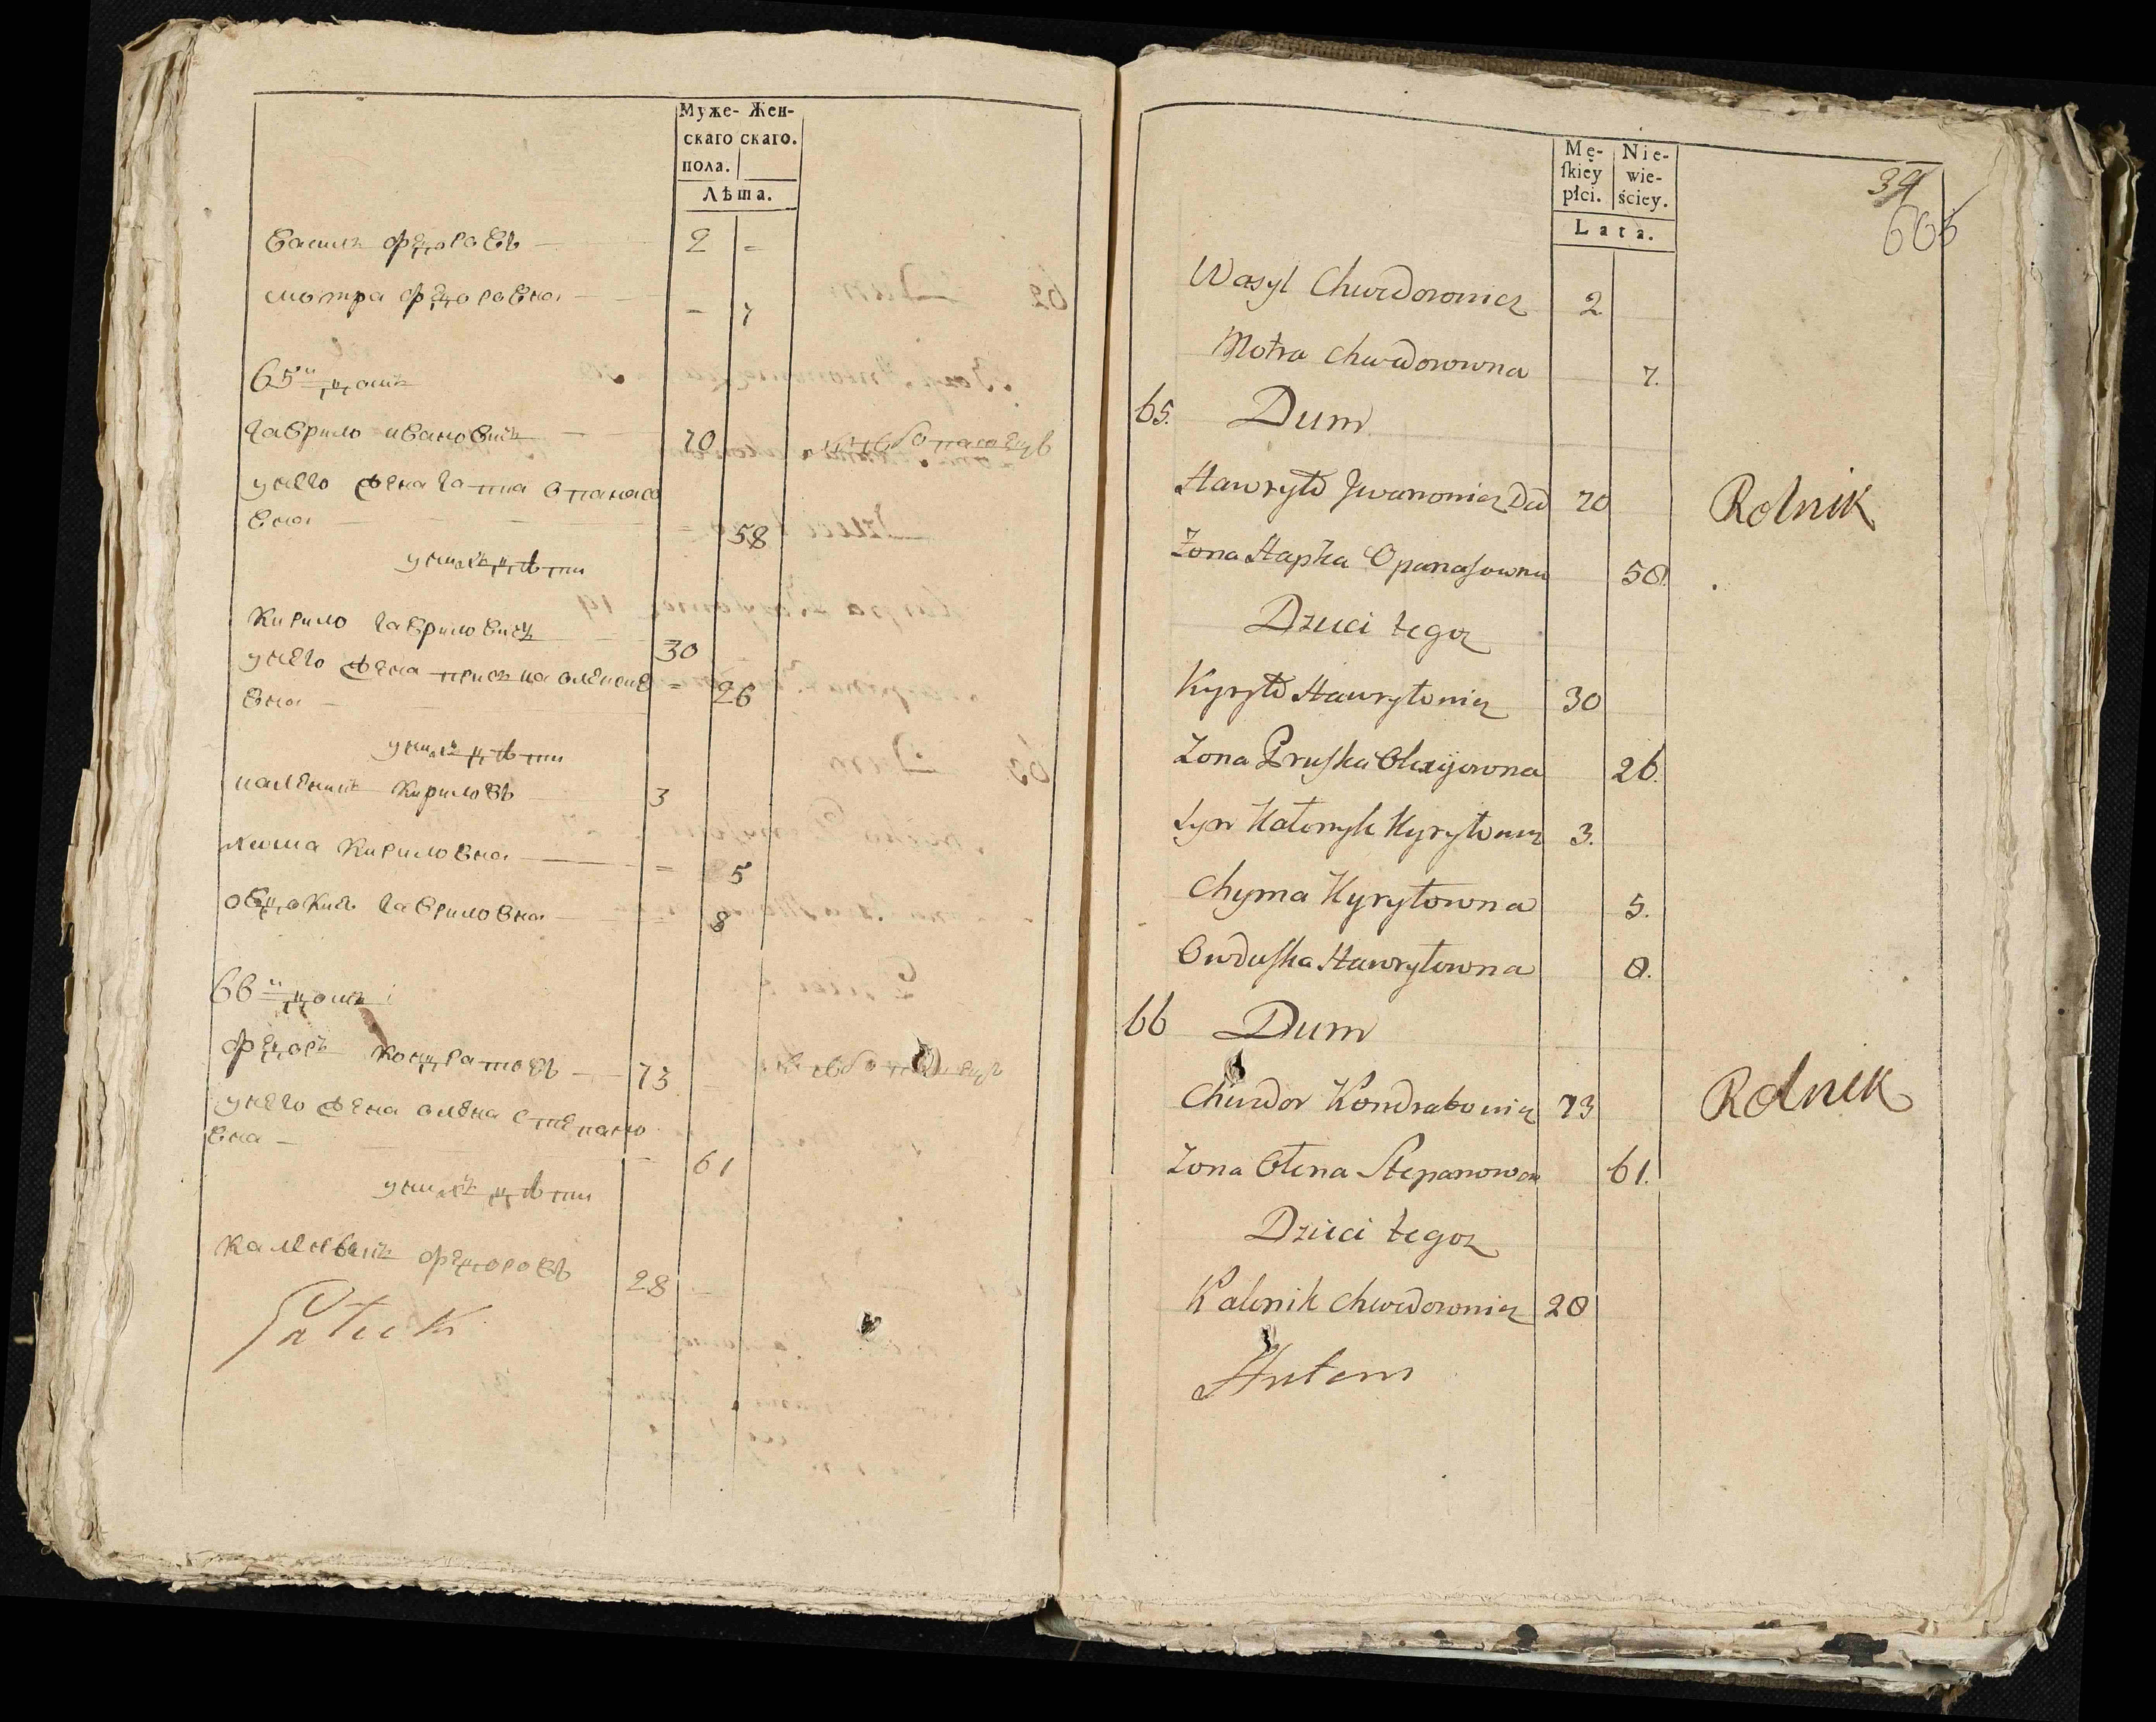 Муже- Жен-
скаго скаго.
пола.
Лѣта.
василь фєдоровъ — 2 =
мотра фєдоровна — = 7
65й домъ
гаврило ивановичъ — 70 хлѣбопашецъ
у него жена гапка опанасо
вна — = 58
у нихъ дѣти
кирило гавриловичъ 30
у него жена приська олексіе = 26
вна —
у нихъ дѣти
каленикъ кириловъ 3
химка кириловна — = 5
овдокия гавриловна — = 8
66й домъ
фєдоръ кондратовъ — 73 хлѣбопашецъ
у него жена олена степано
вна — 61
у нихъ дѣти
каленикъ фєдоровъ 28
Mę- Nie-
skiey wie-
płci. ściey.
Lata.
39
666
Wasyl Chwedorowicz 2
Motra Chwedorowna 7.
65. Dum
Hawryło Jwanowicz Did 70 Rolnik
Zona Hapka Opanasowna 58.
Dzieci tegoz
Kyryło Hawryłowicz 30
Zona Pryska Olexijowna 26.
Syn Kałenyk Kyryłowicz 3.
Chyma Kyryłowna 5.
Owduska Hawryłowna 8.
66 Dum
Chwedor Kondratowicz 73 Rolnik
Zona Ołena Stepanowna 61.
Dzieci tegoz
Kalenik Chwedorowicz 28